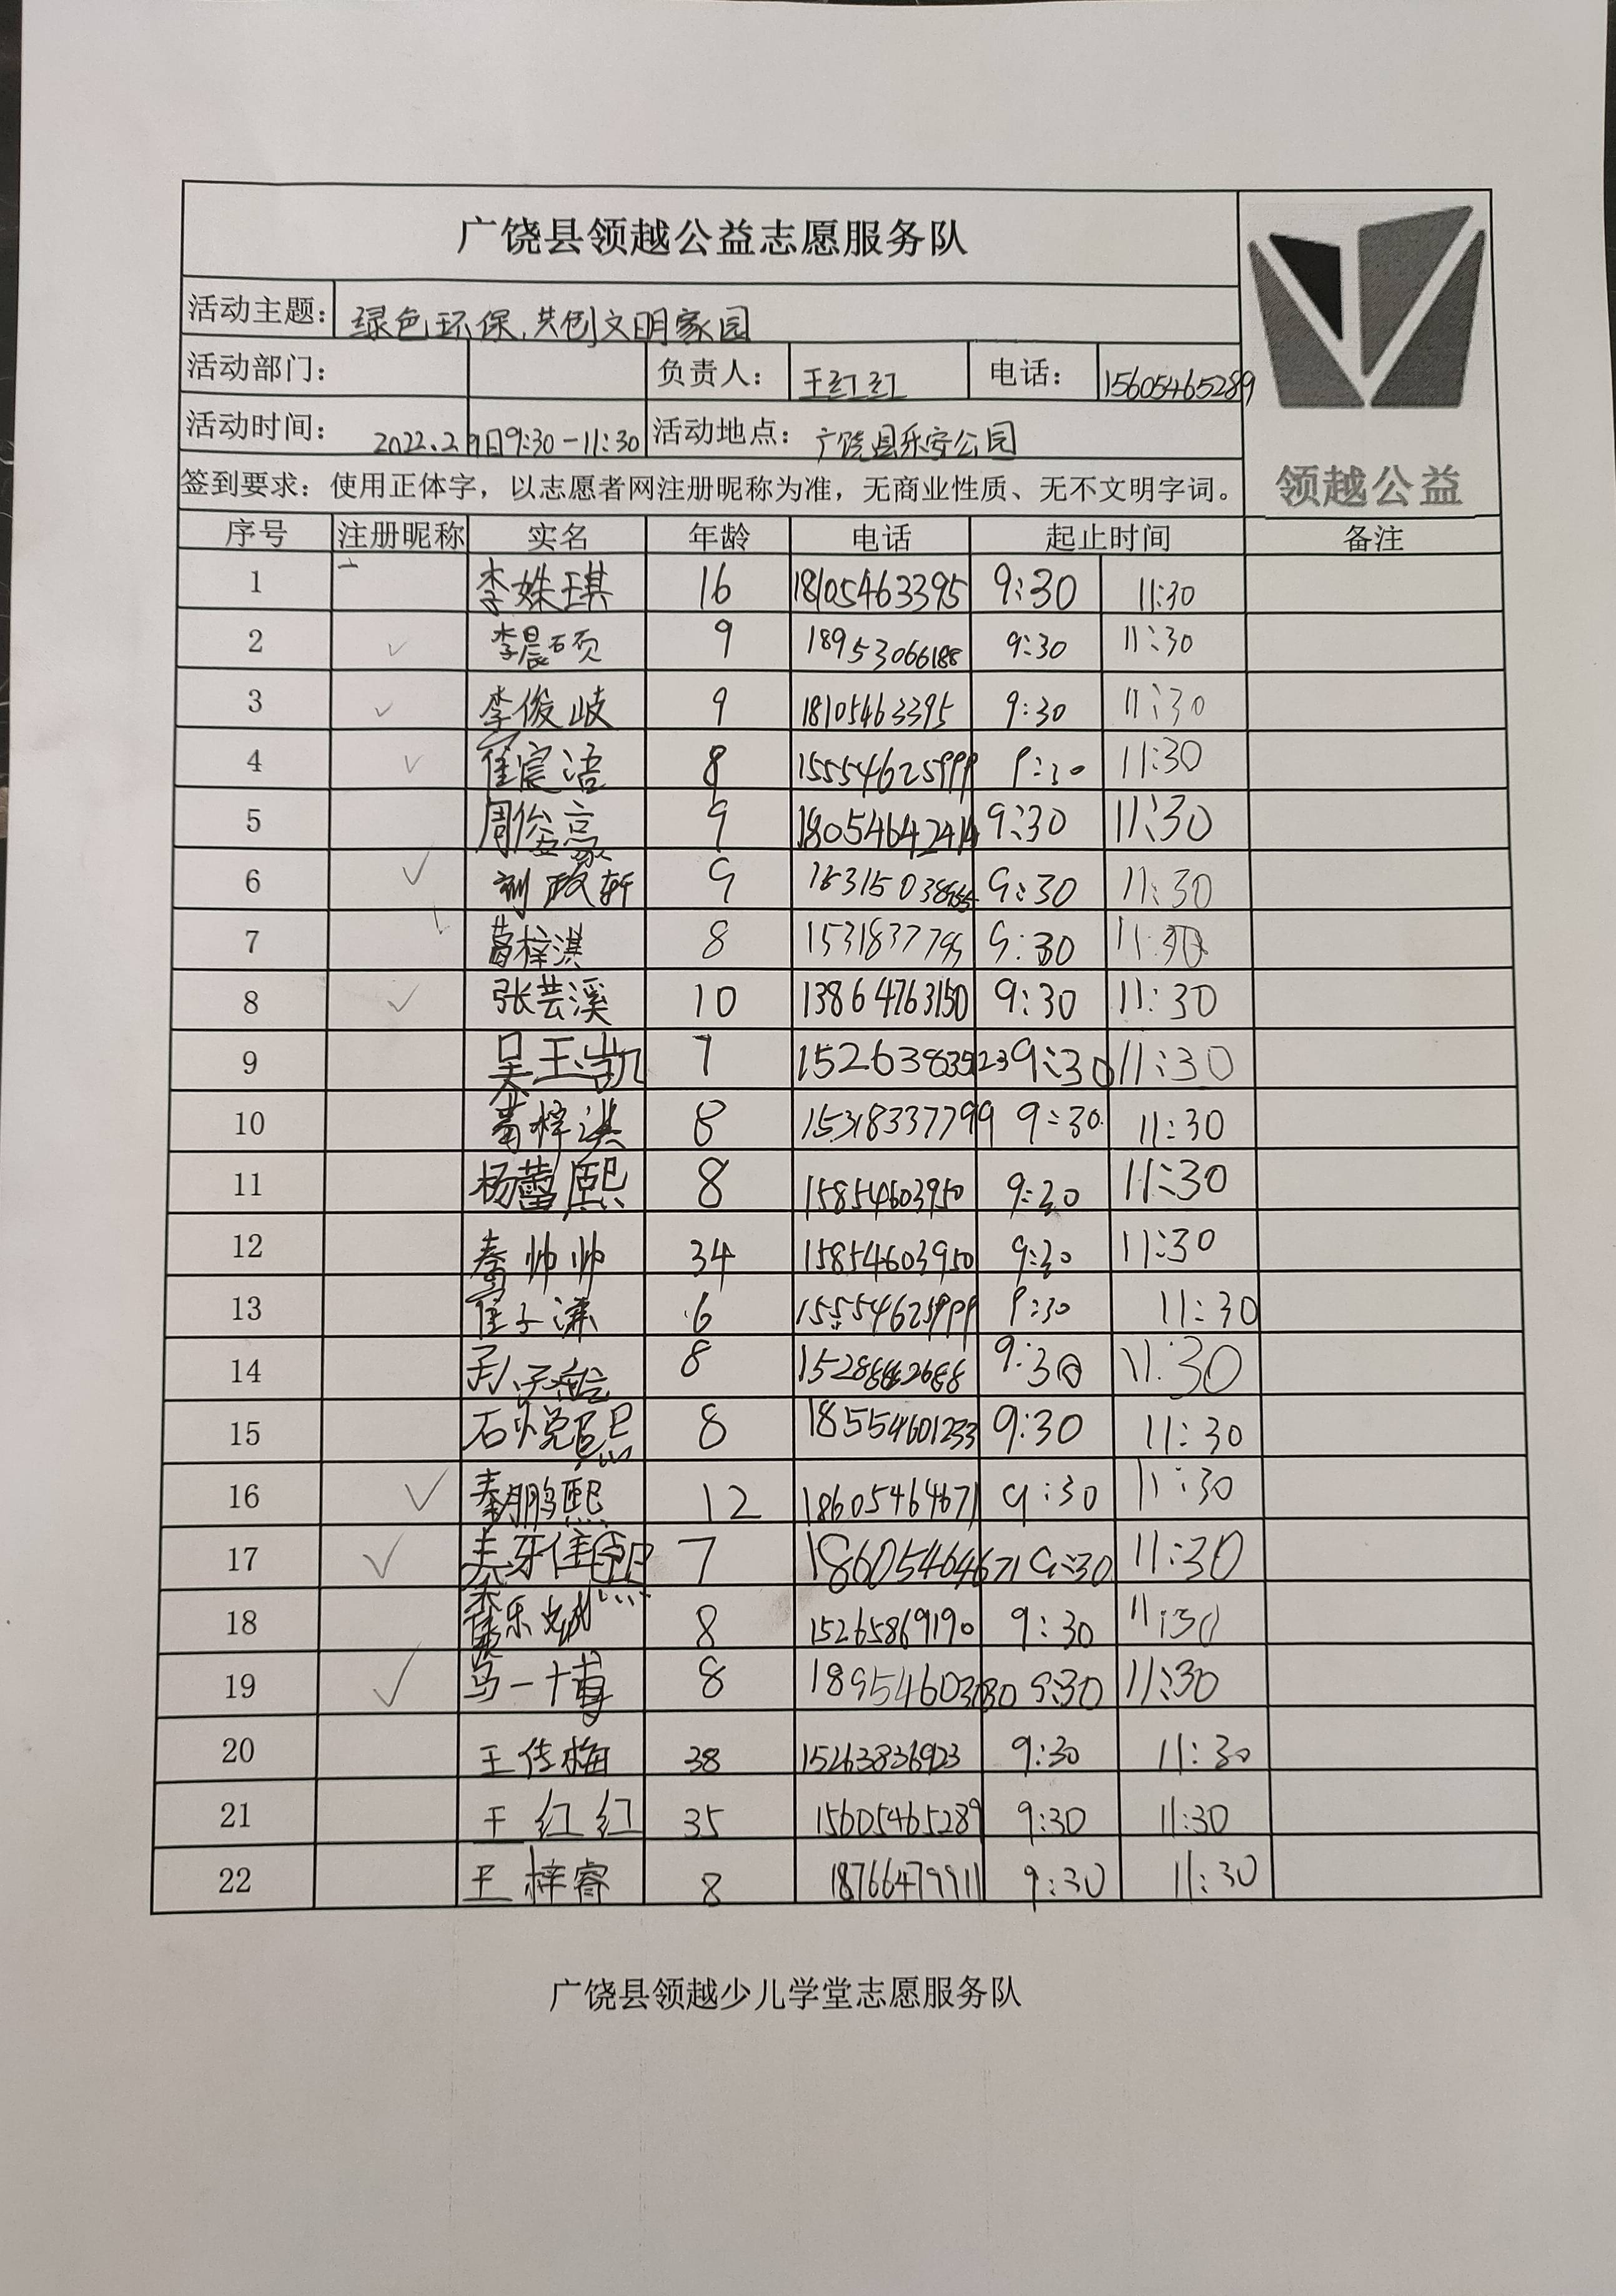 广饶县领越公益志愿服务队
活动主题： 绿色环保，共创文明家园
活动部门： 负责人： 王红红 电话： 15605465289
活动时间： 2022.2 9日9:30-11:30 活动地点： 广饶县乐安公园
领越公益
签到要求：使用正体字，以志愿者网注册昵称为准，无商业性质、无不文明字词。
序号 注册昵称 实名 年龄 电话 起止时间 备注
1 李姝琪 16 18105463395 9:30 11:30
2 ✓ 李晨硕 9 18953066188 9:30 11:30
3 ✓ 李俊岐 9 18105463395 9:30 11:30
4 ✓ 崔宸浯 8 15554625999 9:30 11:30
5 周俊豪 9 18054642414 9:30 11:30
6 ✓ 刘政轩 9 9:30 11:30
7 ✓ 葛梓淇 8 1531837799 9:30 11:30
8 ✓ 张芸溪 10 13864763150 9:30 11:30
9 吴玉凯 7 9:30 11:30
10 葛梓淇 8 15318337799 9:30 11:30
11 杨蕾熙 8 15854603950 9:30 11:30
12 秦帅帅 34 15854603950 9:30 11:30
13 崔子溱 6 15554625999 9:30 11:30
14 8 9:30 11:30
15 石悦熙 8 18554601233 9:30 11:30
16 ✓ 秦鹏熙 12 18605464671 9:30 11:30
17 ✓ 7 18605464671 9:30 11:30
18 8 15265869190 9:30 11:30
19 ✓ 马一博 8 9:30 11:30
20 王传梅 38 15263836923 9:30 11:30
21 王红红 35 15605465289 9:30 11:30
22 王梓睿 8 18766479911 9:30 11:30
广饶县领越少儿学堂志愿服务队